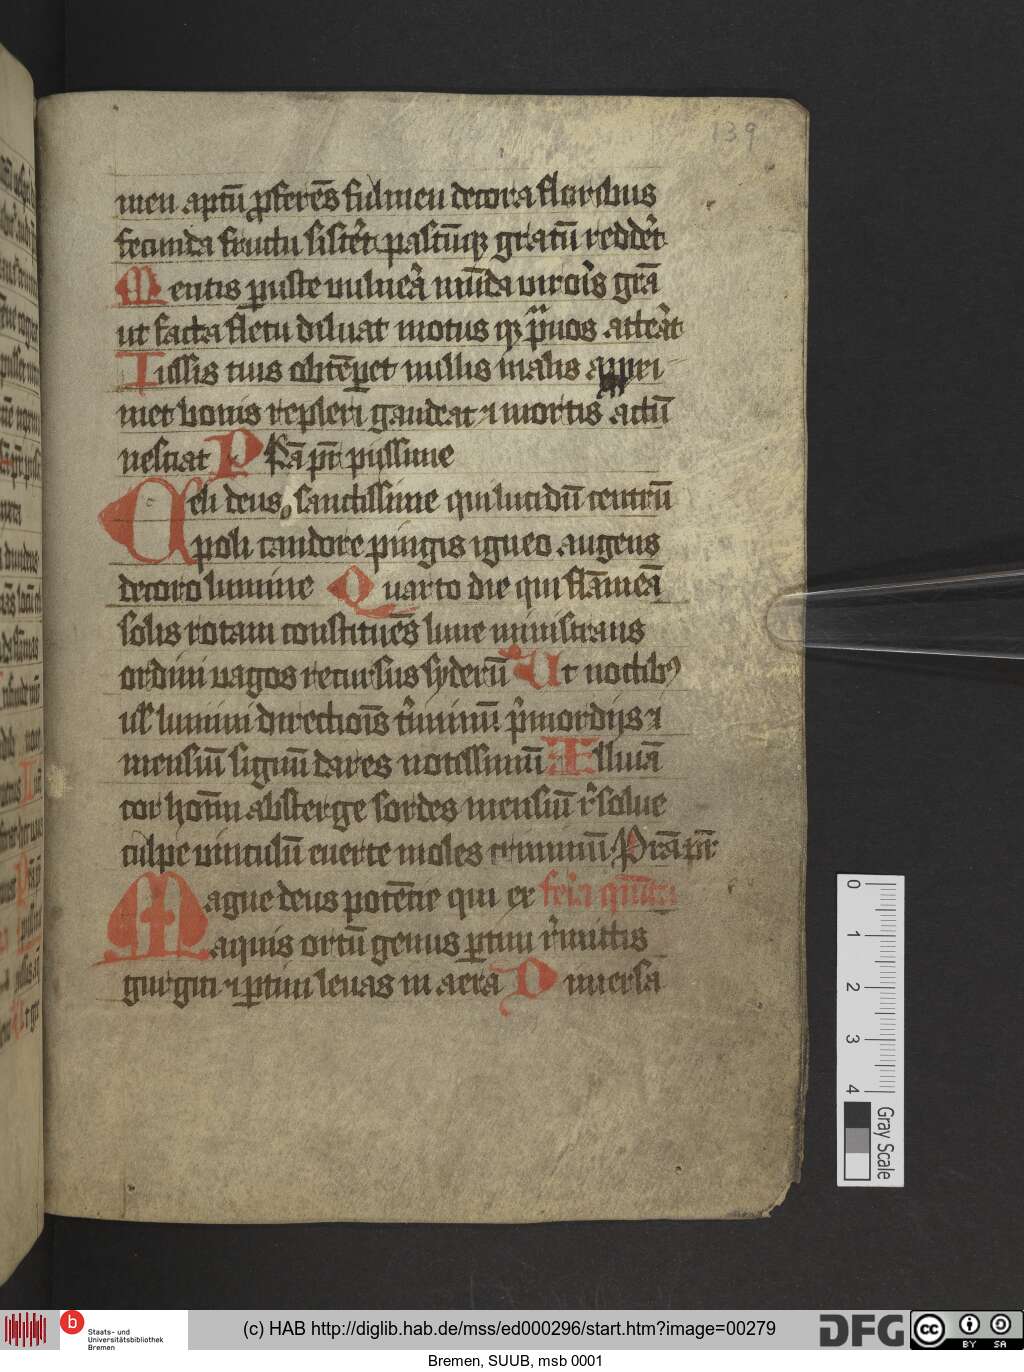 139
men aptū ꝓferēs fulmen decora floribus
fecunda fructu sistēt pastūqꝫ gratū reddēt
Mentis ꝑuste vulnera mūda viroris grā
ut facta fletu diluat motus qꝫ prauos atterat
Iussis tuis obtēꝑet nullis malis appri
met bonis repleri gaudeat ⁊ mortis actū
nesciat P Pſta pr̄ pijssime
Celi deus sanctissime qui lucidū centrū
poli candore pingis igneo augens
decoro lumine Quarto die qui flāmeā
solis rotam constituēs lune ministrans
ordini vagos recursus syderū Ut noctibꝰ
ul' lumini directiois t'minū p'mordijs ⁊
mensiū signū dares notissimū Illuiā
cor hoīm absterge sordes mensiū r'solue
culpe vinculū euerte moles criminū Prā pr̄
Magne deus potētie qui ex feria quīta
aquis ortū genus ꝑtim r'mittis
gurgiti ⁊ ꝑtim leuas in aera Dimersa
0
1
2
3
4
Gray Scale
b
Staats- und
Universitätsbibliothek
Bremen
(c) HAB http://diglib.hab.de/mss/ed000296/start.htm?image=00279
DFG
cc
BY SA
Bremen, SUUB, msb 0001